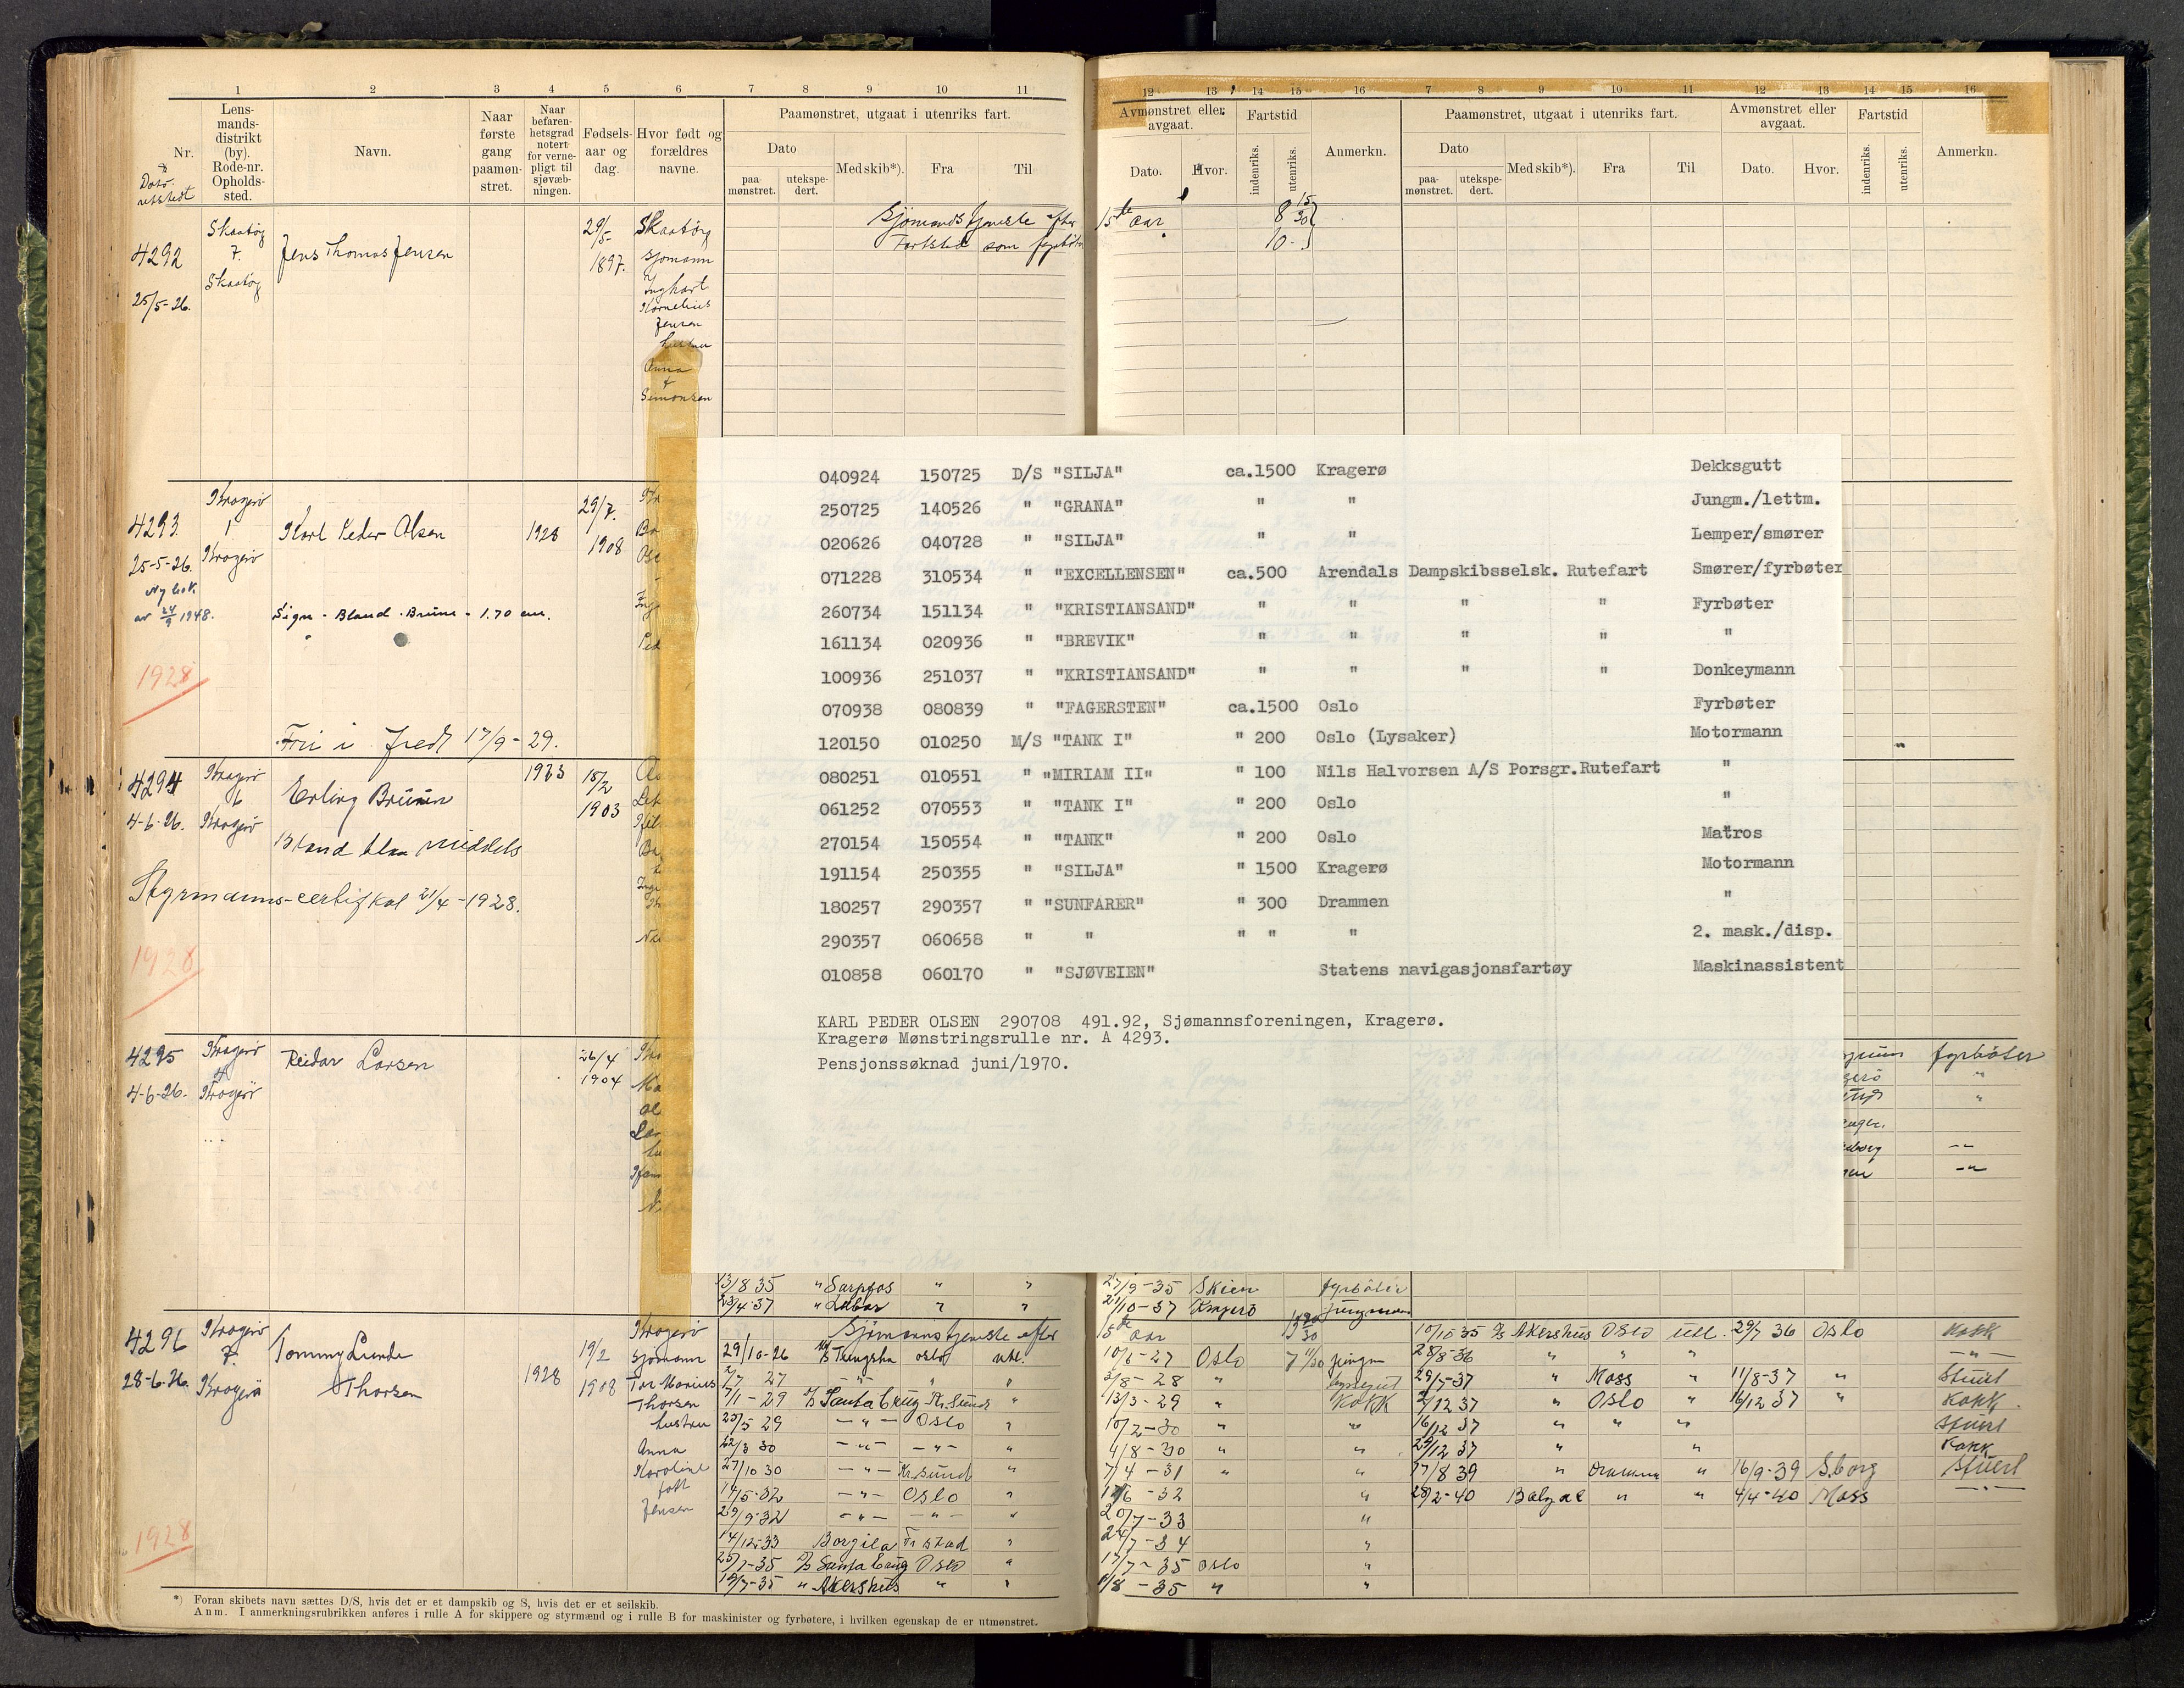 1 2 3 4 5 6 7 8 9 10 11
Nr. Lens-mands-distrikt (by). Rode-nr. Opholds-sted. Navn. Naar første gang paamøn-stret. Naar befaren-hetsgrad notert for verne-pligt til sjøvæb-ningen. Fødsels-aar og dag. Hvor født og forældres navne. Paamønstret, utgaat i utenriks fart.
Dato Med skib*). Fra Til
paa-mønstret. utekspe-dert.
12 13 14 15 16 7 8 9 10 11 12 13 14 15 16
Avmønstret eller avgaat. Fartstid Anmerkn. Paamønstret, utgaat i utenriks fart. Avmønstret eller avgaat. Fartstid Anmerkn.
Dato. Hvor. indenriks. utenriks. Dato Med skib*). Fra Til Dato. Hvor. indenriks. utenriks.
paa-mønstret. utekspe-dert.
4292
25/5-26.
Skaatøy
7.
Skaatøy
Jens Thomas Jensen
29/5-
1897.
Skaatøy
sjømann
Kornelius
Jensen
hustru
Anna
Simonsen
Sjømandstjeneste efter 15de aar
Fartstid som fyrbøter
4293.
25-5-26.
Ny bok
av 24/9 1948.
Kragerø
1
Kragerø
Karl Peder Olsen
1928
29/7.
1908
Sign - Bland. Brune - 1.70 cm.
1928
Fri i fred 17/9-29.
040924 150725 D/S "SILJA" ca.1500 Kragerø Dekksgutt
250725 140526 " "GRANA" " " Jungm./lettm.
020626 040728 " "SILJA" " " Lemper/smører
071228 310534 " "EXCELLENSEN" ca.500 Arendals Dampskibsselsk. Rutefart Smører/fyrbøter
260734 151134 " "KRISTIANSAND" " " " " Fyrbøter
161134 020936 " "BREVIK" " " " " "
100936 251037 " "KRISTIANSAND" " " " " Donkeymann
070938 080839 " "FAGERSTEN" ca.1500 Oslo Fyrbøter
120150 010250 M/S "TANK I" " 200 Oslo (Lysaker) Motormann
080251 010551 " "MIRIAM II" " 100 Nils Halvorsen A/S Porsgr.Rutefart "
061252 070553 " "TANK I" " 200 Oslo "
270154 150554 " "TANK" " 200 Oslo Matros
191154 250355 " "SILJA" " 1500 Kragerø Motormann
180257 290357 " "SUNFARER" " 300 Drammen "
290357 060658 " " " " " 2. mask./disp.
010858 060170 " "SJØVEIEN" Statens navigasjonsfartøy Maskinassistent
KARL PEDER OLSEN 290708 491.92, Sjømannsforeningen, Kragerø.
Kragerø Mønstringsrulle nr. A 4293.
Pensjonssøknad juni/1970.
4294
4-6-26.
Kragerø
6
Kragerø
Erling Bruun
1923
15/2
1903
Bland blaa middels
Styrmanns-certifkat 21/4-1928.
1928
4295
4-6-26.
Kragerø
4
Kragerø
Reidar Larsen
26/4
1904
fyrbøter
13/8 35 " Sarpfos " " 27/9-35 Skien fyrbøter
23/4-37 " Labor " " 21/10-37 Kragerø jungmann
4296
28-6-26.
Kragerø
7.
Kragerø
Tommy Lunde
Thorsen
1928
19/2
1908
Kragerø
sjømann
Tor Marius
Thorsen
hustru
Anna
Karoline
født
Jensen
1928
Sjømannstjeneste efter 15de aar
29/10-26 Oslo utl. 10/6-27 Oslo jungm
2/7 27 -"- -"- " 2/8-28 "
7/1-29 Santa Cruz Kr.sund " 13/3-29 " Kokk
23/5 29 -"- Oslo " 10/2-30 "
22/3 30 -"- -"- " 4/8-30 " "
27/10 30 -"- Kr.sund " 7/4-31 " "
14/5-32 -"- Oslo " 1/6-32 "
29/9-32 -"- -"- " 20/7-33 "
14/12-33 Borgila Fr.stad " 24/7-34 "
25/7-35 Santa Cruz Oslo " 17/7-35 Oslo "
19/7-35 " Akershus " " 1/8-35 " "
10/10 35 D/S Akershus Oslo utl. 29/7 36 Oslo Kokk
28/8-36 " " " -"-
29/5-37 " Moss " 11/8-37 " Stuert
2/12 37 " Oslo " 16/12 37 " Kokk.
16/12 37 " " " Stuert
29/12 37 " " Kokk
17/8 39 " Drammen " 16/9-39 S.borg Stuert
28/2-40 Balzac " " 4/4-40 Moss -"-
*) Foran skibets navn sættes D/S, hvis det er et dampskib og S, hvis det er et seilskib.
Anm. I anmerkningsrubrikken anføres i rulle A for skippere og styrmænd og i rulle B for maskinister og fyrbøtere, i hvilken egenskap de er utmønstret.